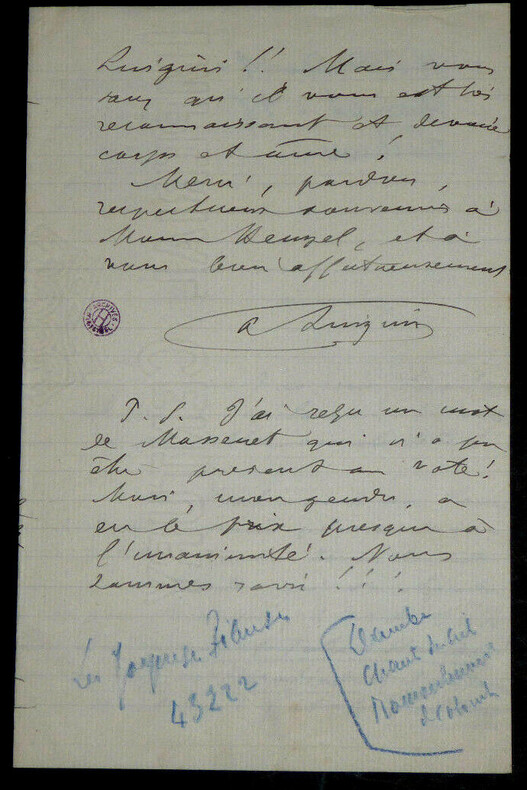 Luigini !! Mais vous
savez qu'il vous est très
reconnaissant et dévoué
corps et âme !
Merci, pardon,
respectueux souvenirs à
Mme Heugel, et à
vous bien affectueusement
A Luigini
P. S. J'ai reçu un mot
de Massenet qui n'a pu
être présent au vote !
Mais, mon gendre, a
eu le prix presqu'à
l'unanimité. Nous
sommes ravis ! ! !
Les Joyeuse
43222
Danube
Chant du